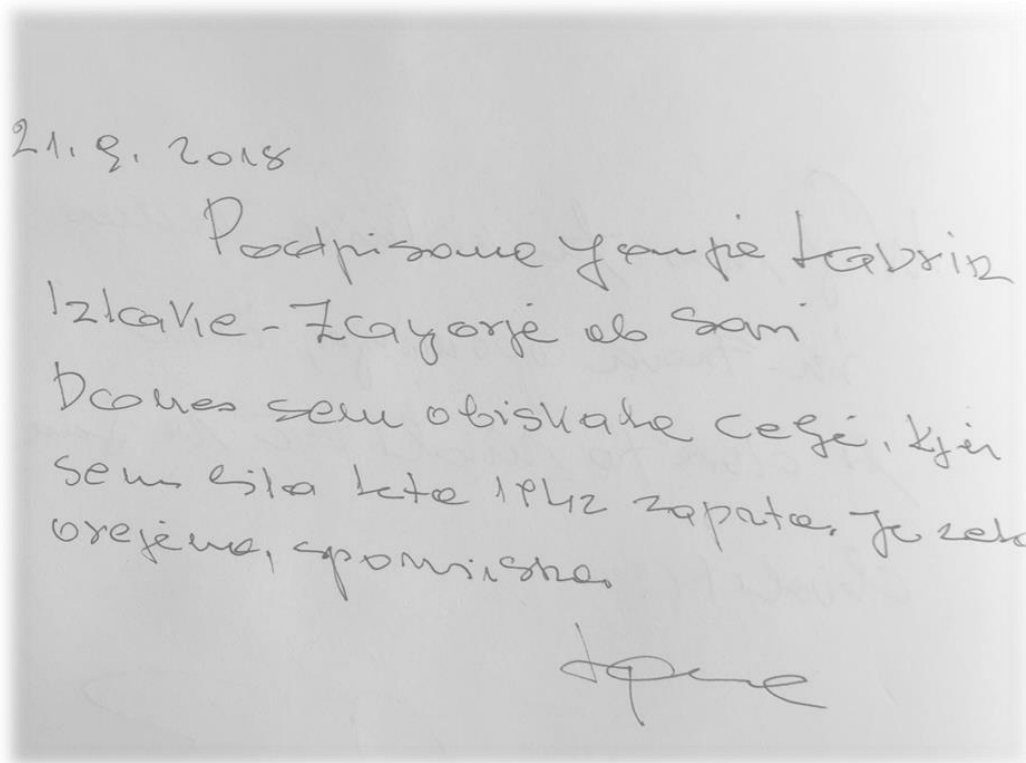 21. 9. 2018
Podpisana Lavrin
Izlake - Zagorje ob Savi
Danes sem obiskala celje, kjer
sem bila leta 1942 zaprta. Je zelo
urejena, spominska.